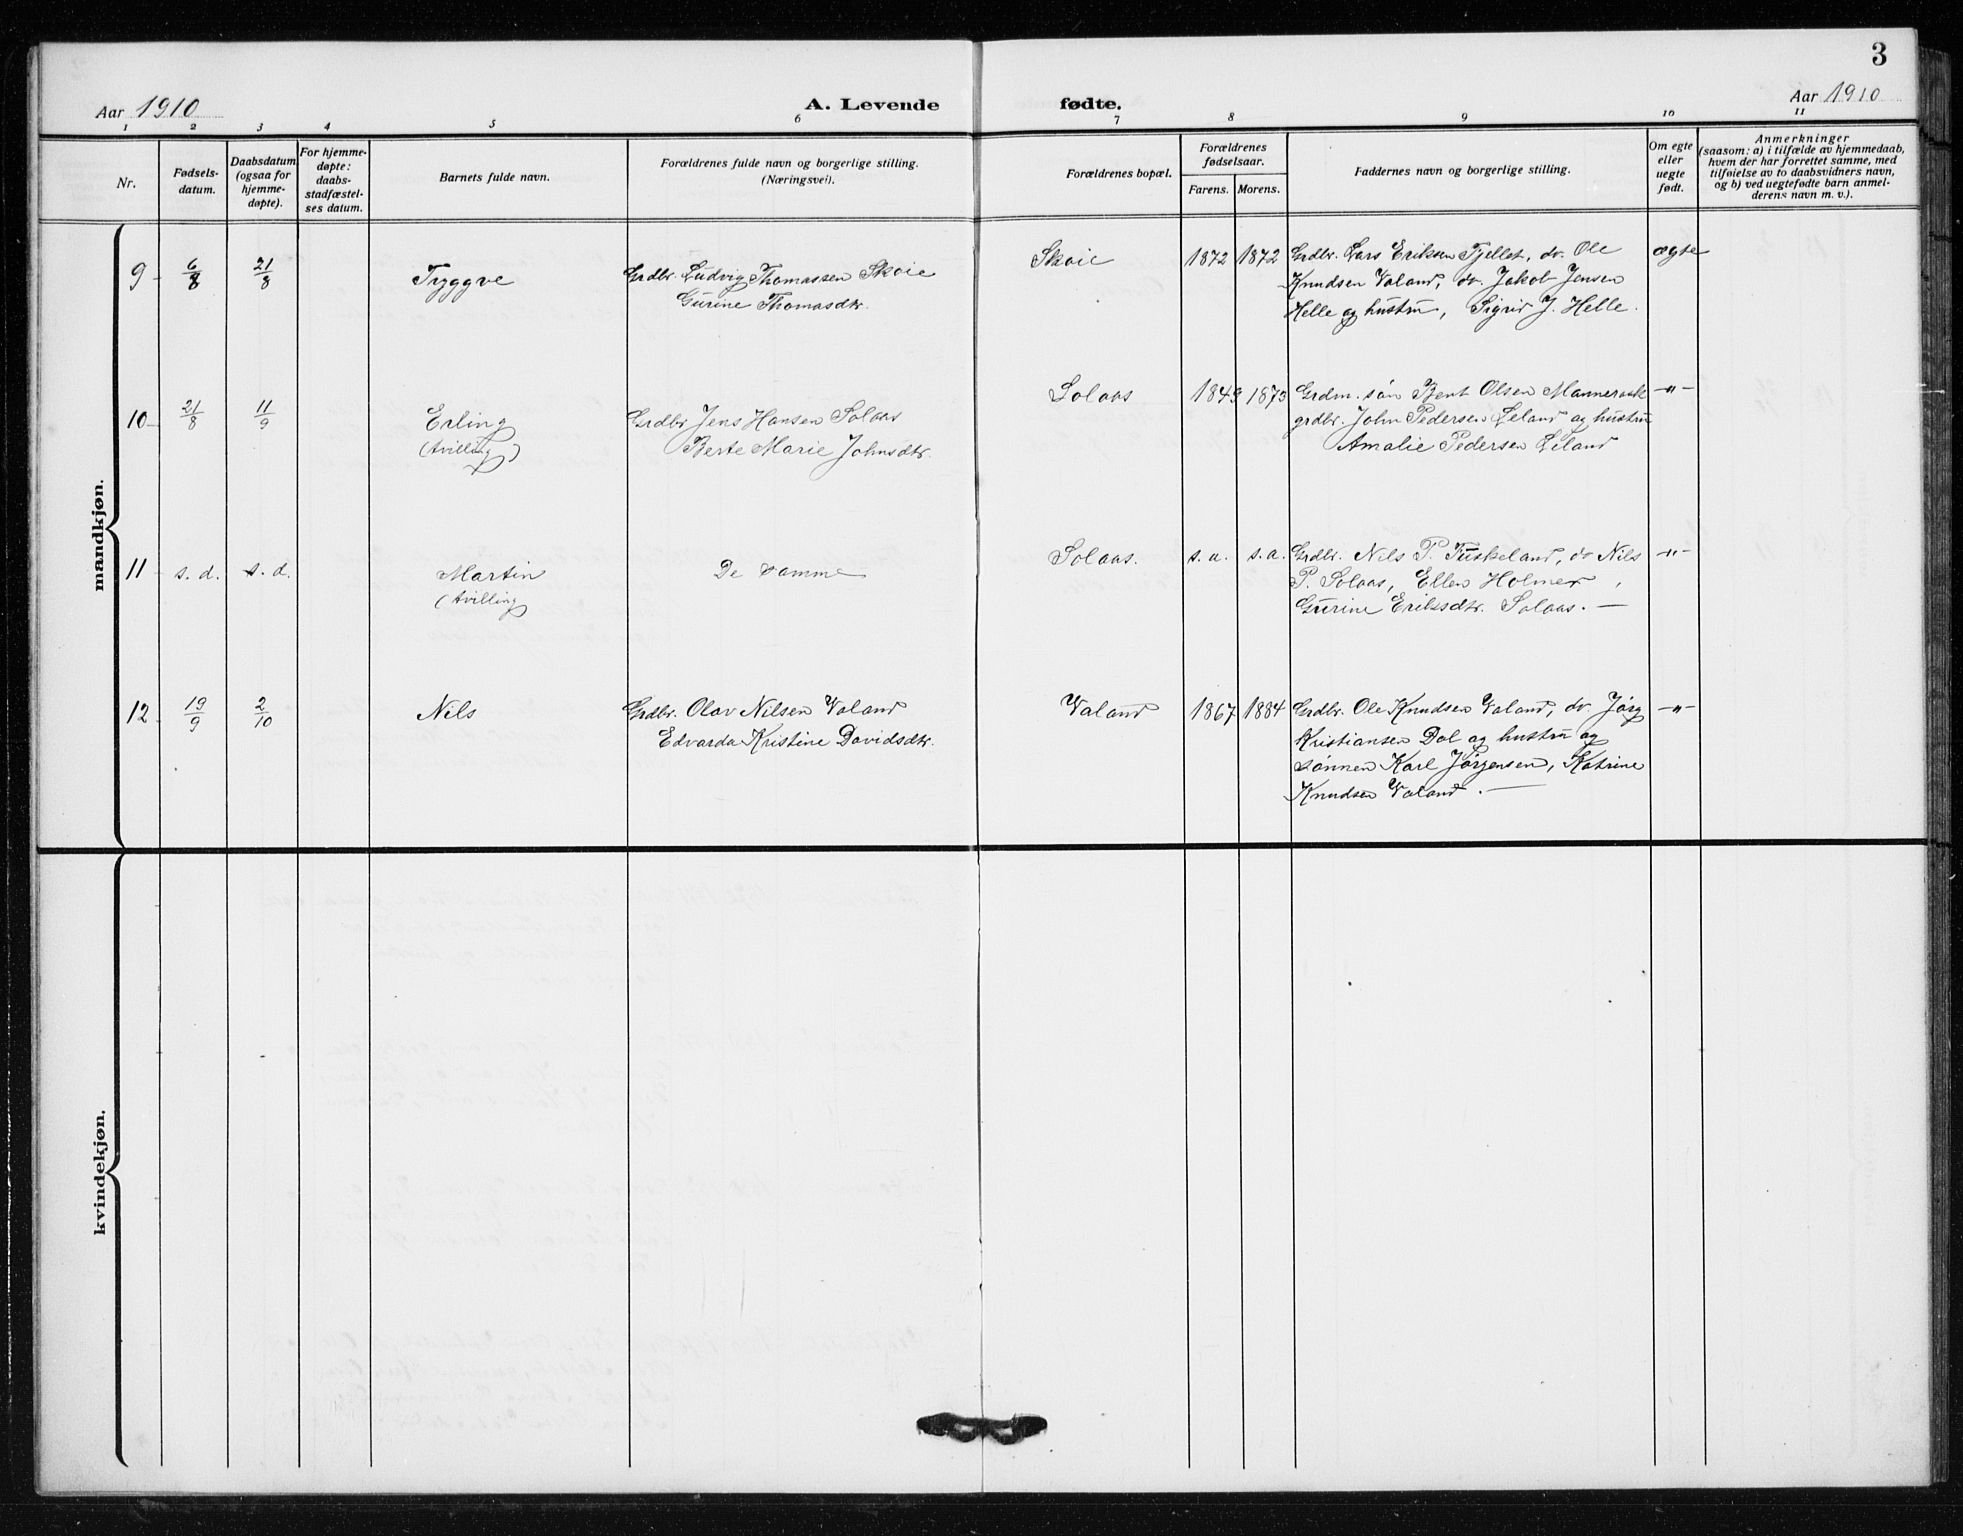 3
Aar 1910 A. Levende fødte. Aar 1910
1 2 3 4 5 6 7 8 9 10 11
Nr.
Fødsels-
datum.
Daabsdatum
(ogsaa for
hjemme-
døpte).
For hjemme-
døpte:
daabs-
stadfæstel-
ses datum.
Barnets fulde navn.
Forældrenes fulde navn og borgerlige stilling.
(Næringsvei).
Forældrenes bopæl.
Forældrenes
fødselsaar.
Farens. Morens.
Faddernes navn og borgerlige stilling.
Om egte
eller
uegte
født.
Anmerkninger
(saasom: a) i tilfælde av hjemmedaab,
hvem der har forrettet samme, med
tilføielse av to daabsvidners navn,
og b) ved uegtefødte barn anmel-
derens navn m. v.).
mandkjøn.
9 6/8 21/8
Tryggve
Grdbr. Ludvig Thomassen Skoie
Gurine Thomasdtr.
Skoie
1872 1872
Grdbr. Lars Eriksen Fjellet, do. Ole
Knudsen Valand, do. Jakob Jensen
Helle og hustru, Sigrid J. Helle.
ægte
10 21/8 11/9
Erling
(tvilling)
Grdbr Jens Hansen Solaas
Berte Marie Johnsdtr.
Solaas
1849 1873
Grdm. søn Bent Olsen Manneraak
grdbr. John Pedersen Leland og hustru
Amalie Pedersen Leland
-"-
11 s. d. s. d.
Martin
(tvilling
De samme
Solaas.
s. a. s. a.
Grdbr. Nils P. Tuskeland, do Nils
P. Solaas, Ellen Holmer,
Gurine Eriksdtr. Solaas. —
-"-
12 19/9 2/10
Nils
Grdbr. Olav Nilsen Valand
Edvarda Kristine Davidsdtr.
Valand
1867 1884
Grdbr. Ole Knudsen Valand, do. Jørg
Kristiansen Dal og hustru og
sønnen Karl Jørgensen, Katrine
Knudsen Valand. —
-"-
kvindekjøn.